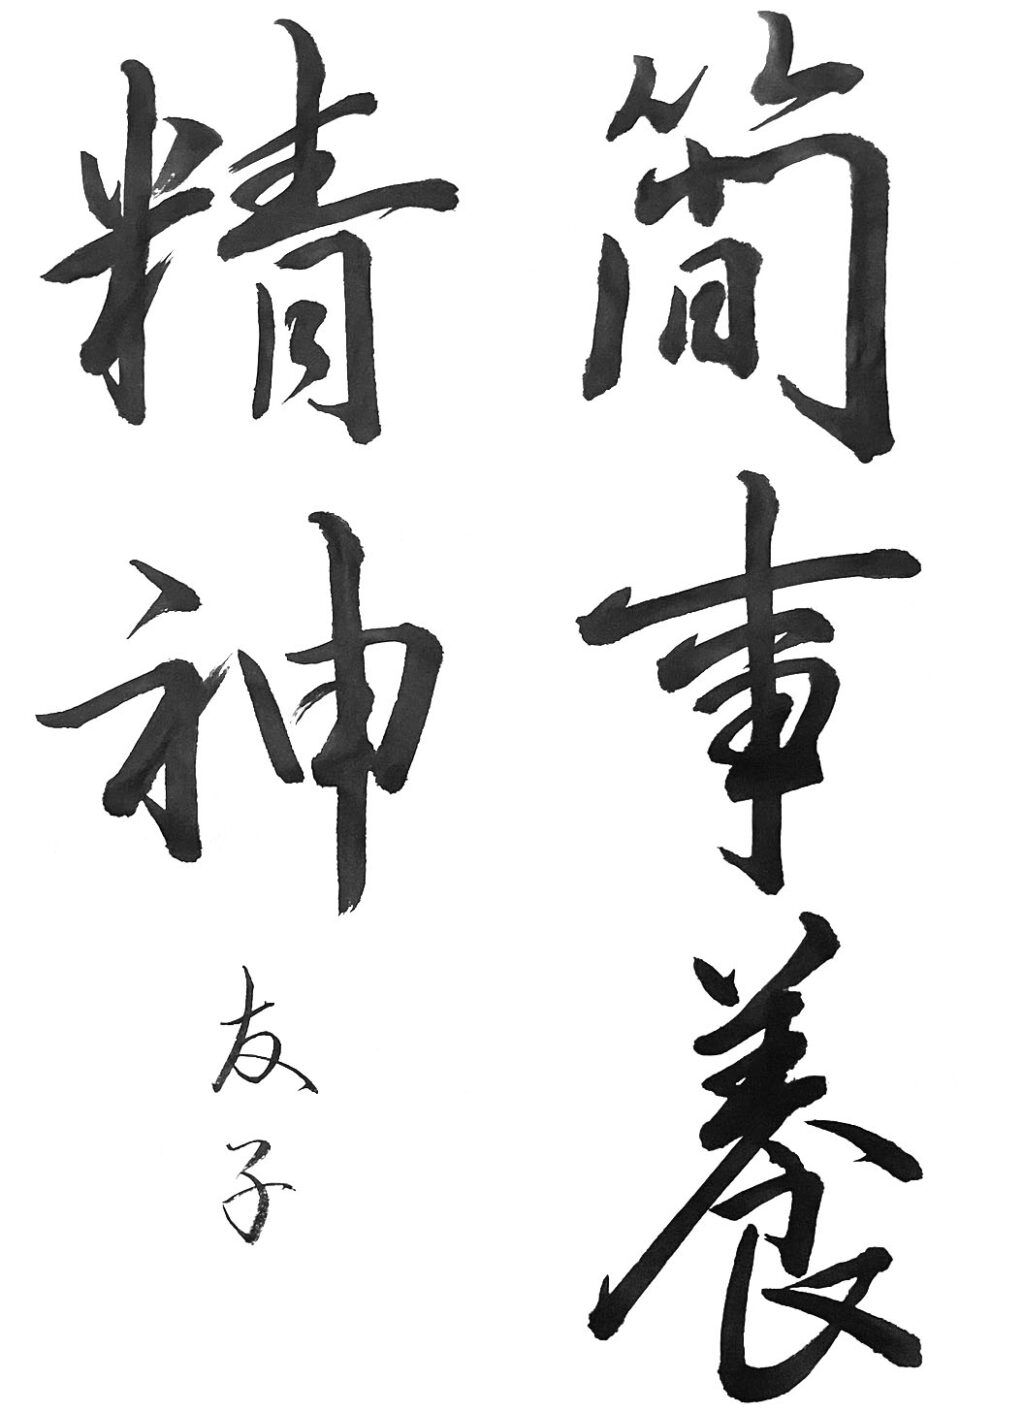 簡事養
精神
友子